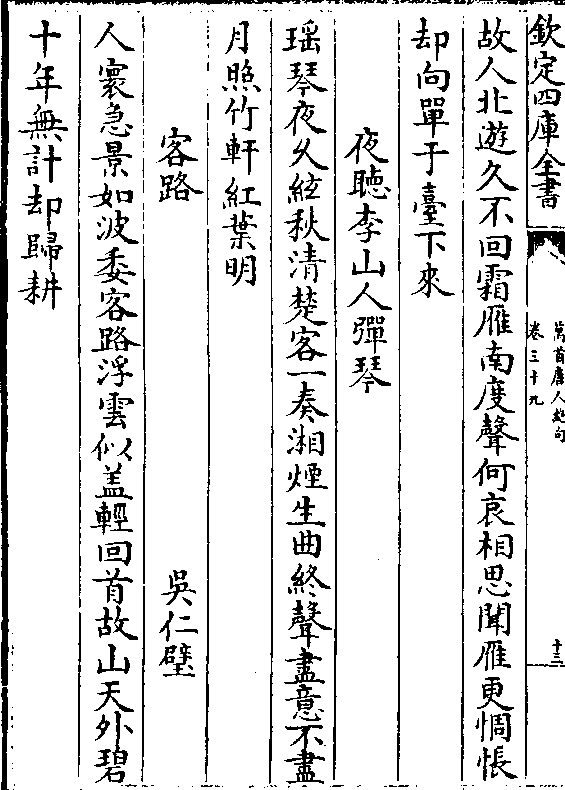 欽定四庫全書
萬首唐人絶句
卷三十九
十三
故人北遊久不回霜雁南度聲何哀相思聞雁更惆悵
却向單于臺下來
夜聽李山人彈琴
瑶琴夜久絃秋清楚客一奏湘煙生曲終聲盡意不盡
月照竹軒紅葉明
客路
吳仁璧
人寰急景如波委客路浮雲似盖輕回首故山天外碧
十年無計却歸耕